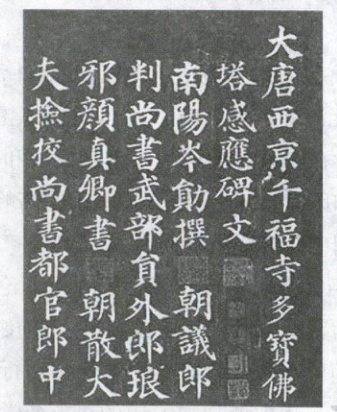 大唐西京千福寺多寶佛
塔感應碑文
南陽岑勛撰 朝議郎
判尚書武部員外郎琅
邪顏真卿書 朝散大
夫撿挍尚書都官郎中